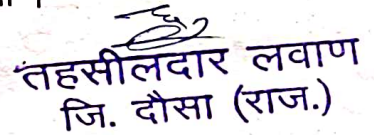 तहसीलदार लवाण
जि. दौसा (राज.)